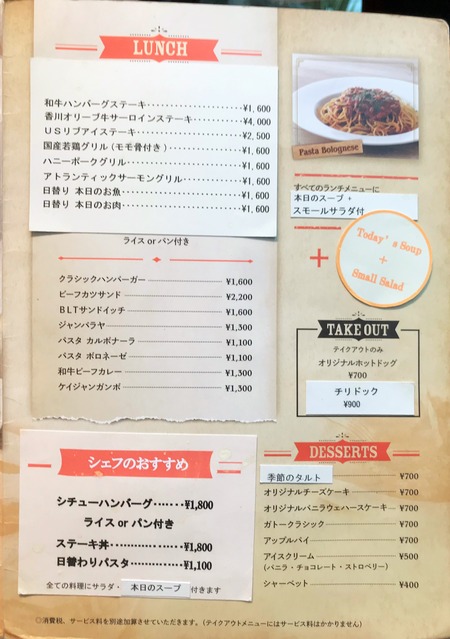 LUNCH
和牛ハンバーグステーキ‥‥‥‥‥‥‥¥1,600
香川オリーブ牛サーロインステーキ‥‥‥‥¥4,000
USリブアイステーキ‥‥‥‥‥‥‥‥¥2,500
国産若鶏グリル(モモ骨付き)‥‥‥‥‥¥1,600
ハニーポークグリル‥‥‥‥‥‥‥‥¥1,600
アトランティックサーモングリル‥‥‥‥¥1,600
日替り 本日のお魚‥‥‥‥‥‥‥‥¥1,600
日替り 本日のお肉‥‥‥‥‥‥‥‥¥1,600
ライス or パン付き
クラシックハンバーガー ¥1,600
ビーフカツサンド ¥2,200
BLTサンドイッチ ¥1,600
ジャンバラヤ ¥1,300
パスタ カルボナーラ ¥1,100
パスタ ボロネーゼ ¥1,100
和牛ビーフカレー ¥1,300
ケイジャンガンボ ¥1,300
シェフのおすすめ
シチューハンバーグ‥‥‥¥1,800
ライス or パン付き
ステーキ丼‥‥‥‥‥¥1,800
日替わりパスタ‥‥‥‥¥1,100
全ての料理にサラダ・本日のスープ 付きます
Pasta Bolognese
すべてのランチメニューに
本日のスープ +
スモールサラダ付
+
Today's Soup
+
Small Salad
TAKE OUT
テイクアウトのみ
オリジナルホットドッグ
¥700
チリドック
¥900
DESSERTS
季節のタルト ¥700
オリジナルチーズケーキ ¥700
オリジナルバニラウェハースケーキ ¥700
ガトークラシック ¥700
アップルパイ ¥700
アイスクリーム ¥500
(バニラ・チョコレート・ストロベリー)
シャーベット ¥400
◎消費税、サービス料を別途加算させていただきます。(テイクアウトメニューにはサービス料はかかりません)